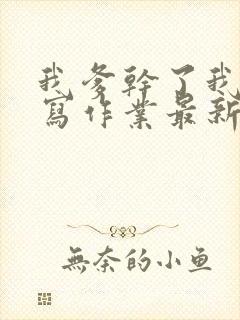 我爹幹了我
寫作業最新
無奈的小鱼